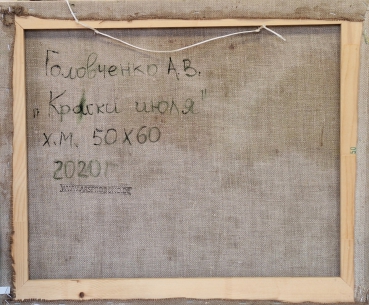 Головченко А.В.
„Краски июля"
х.м. 50х60
2020г